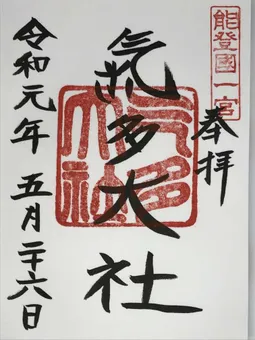 能登國一宮
奉拝
氣多大社
氣多大社
令和元年五月二十六日